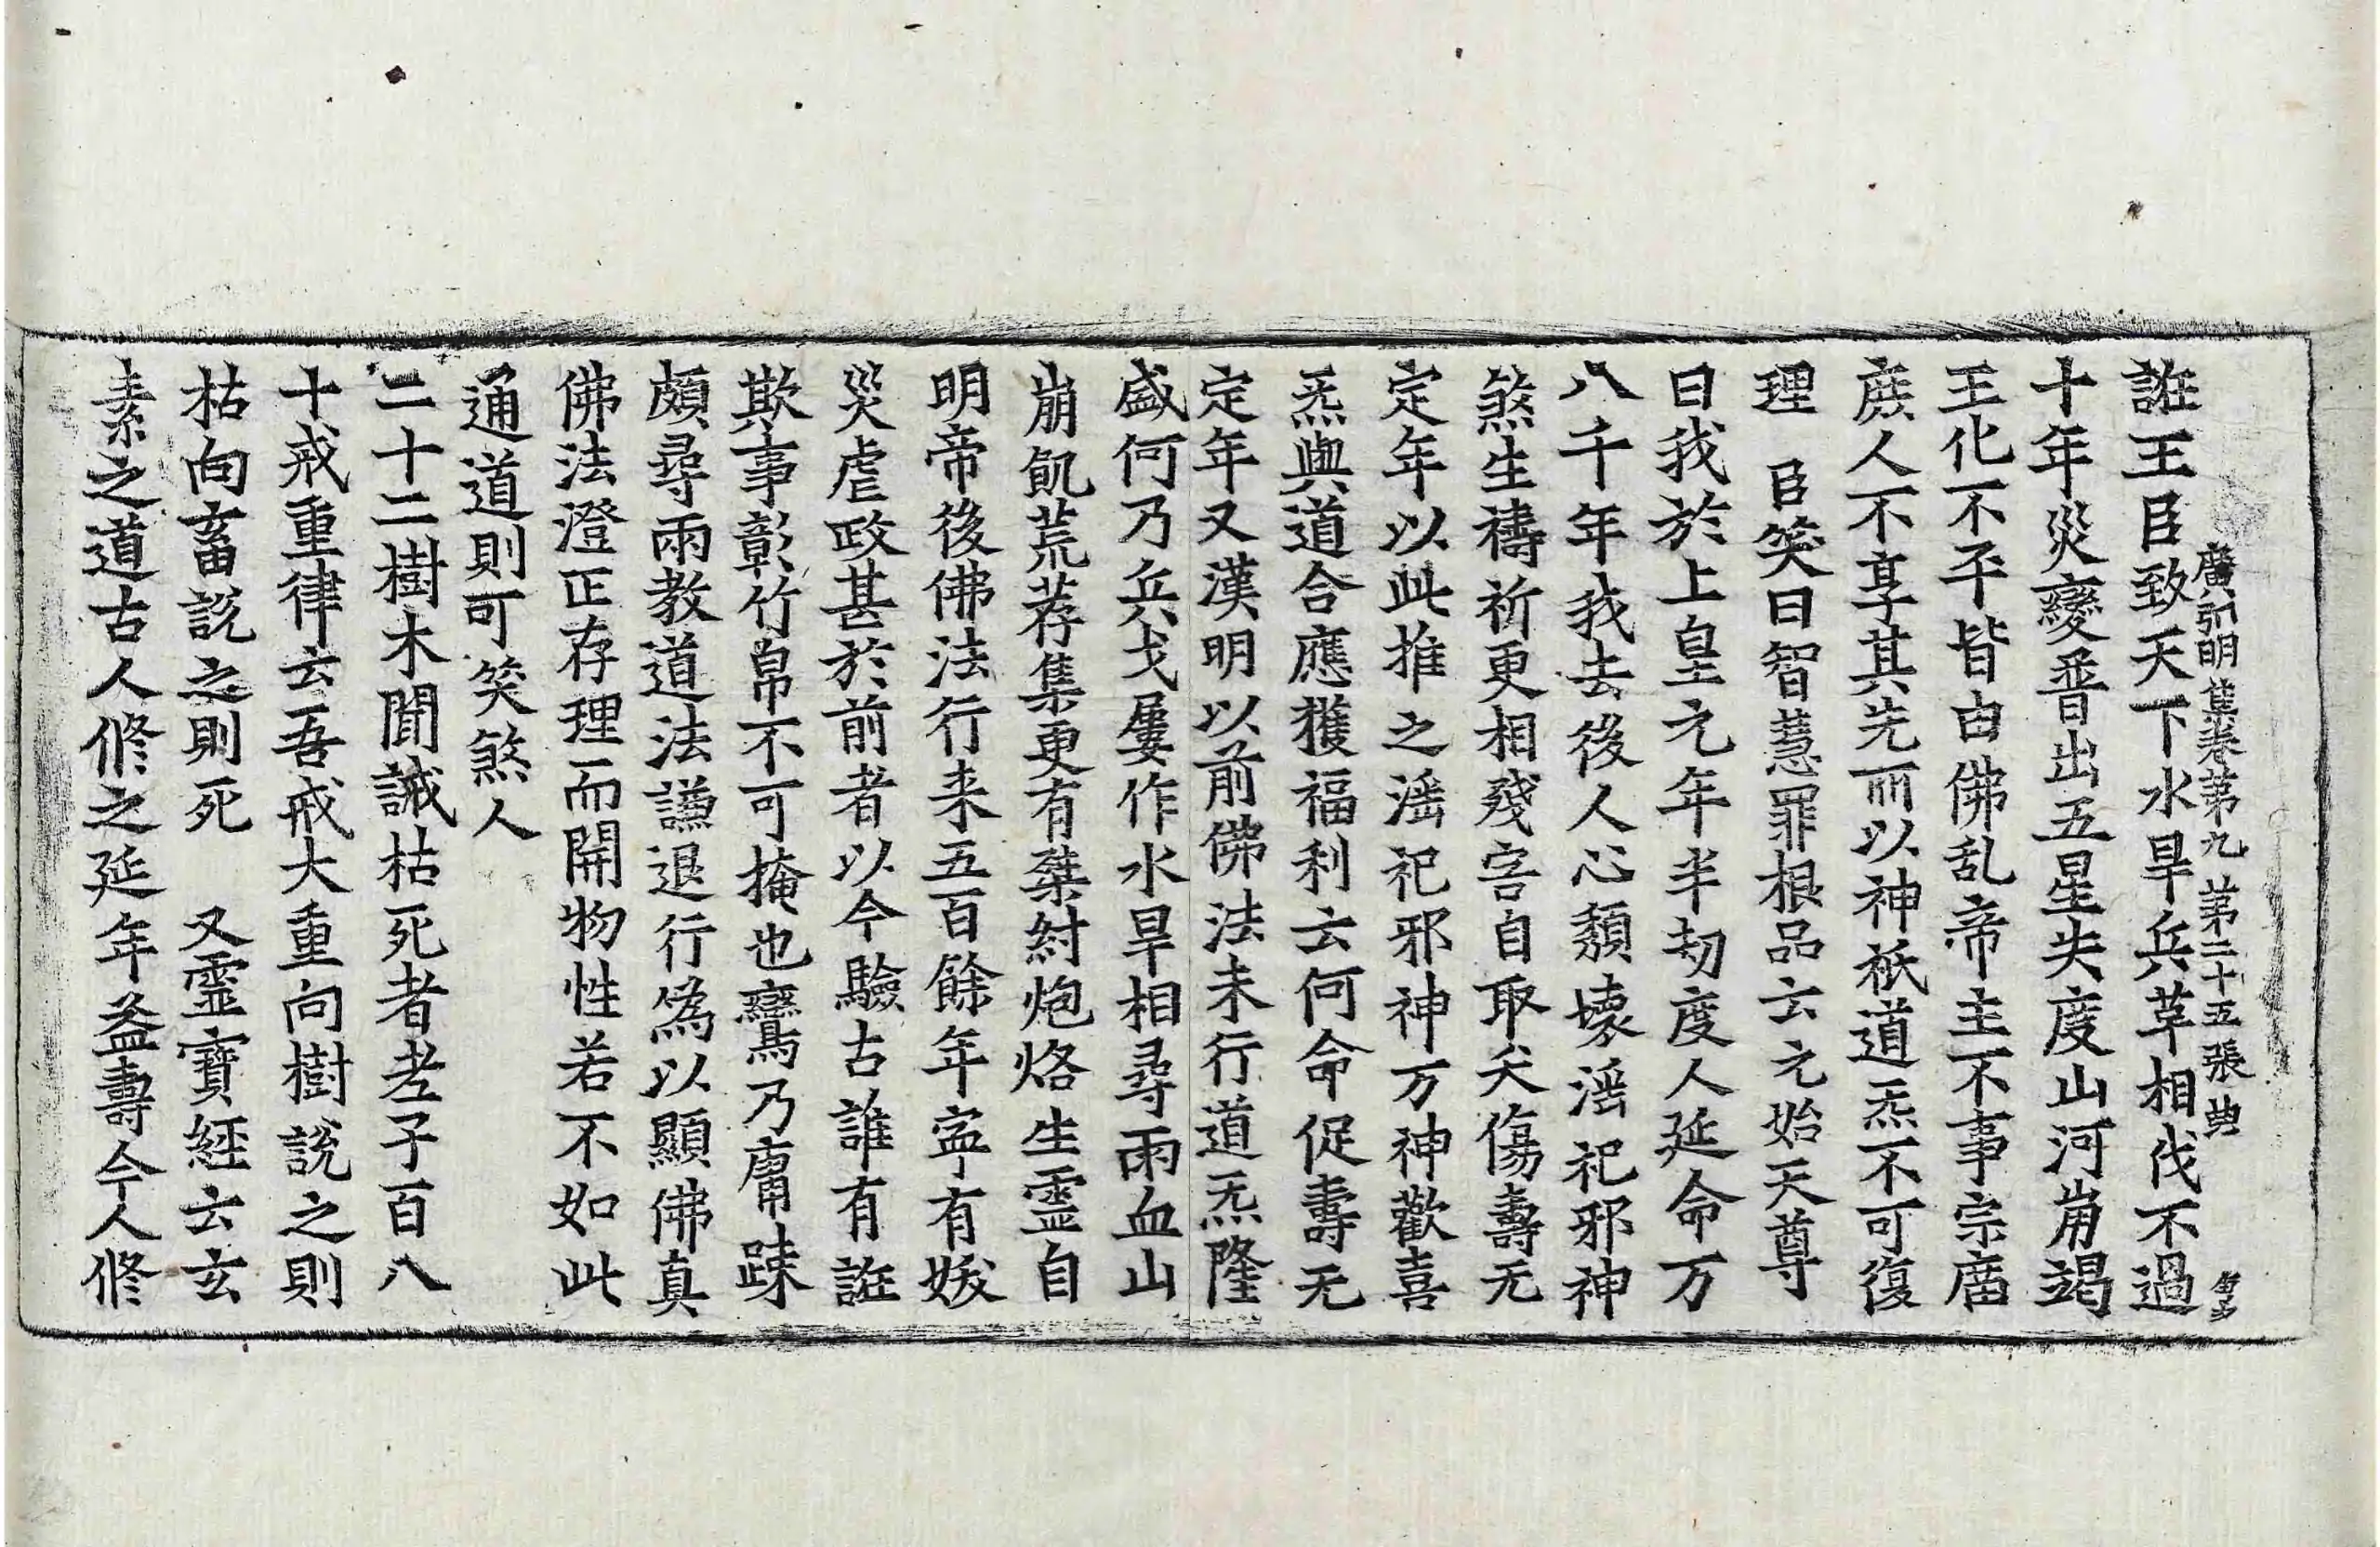 誑王臣致天下水旱兵革相伐不過
廣弘明集卷第九 第二十五張 典
十年災變普出五星失度山河崩竭
王化不平皆由佛乱帝主不事宗庿
庶人不享其先所以神祇道炁不可復
理 臣笑曰智慧罪根品云元始天尊
曰我於上皇元年半劫度人延命万
八千年我去後人心頹壞滛祀邪神
煞生禱祈更相殘害自取夭傷壽无
定年以此推之滛祀邪神万神歡喜
炁與道合應獲福利云何命促壽无
定年又漢明以前佛法未行道炁隆
盛何乃兵戈屢作水旱相尋雨血山
崩飢荒荐集更有桀紂炮烙生靈自
明帝後佛法行来五百餘年寧有妖
災虐政甚於前者以今驗古誰有誑
欺事彰竹帛不可掩也鸞乃庸踈
頗尋兩教道法謙退行為以顯佛真
佛法澄正存理而開物性若不如此
通道則可笑煞人
二十二樹木聞誡枯死者老子百八
十戒重律云吾戒大重向樹說之則
枯向畜說之則死 又靈寶經云玄
素之道古人修之延年益壽今人修